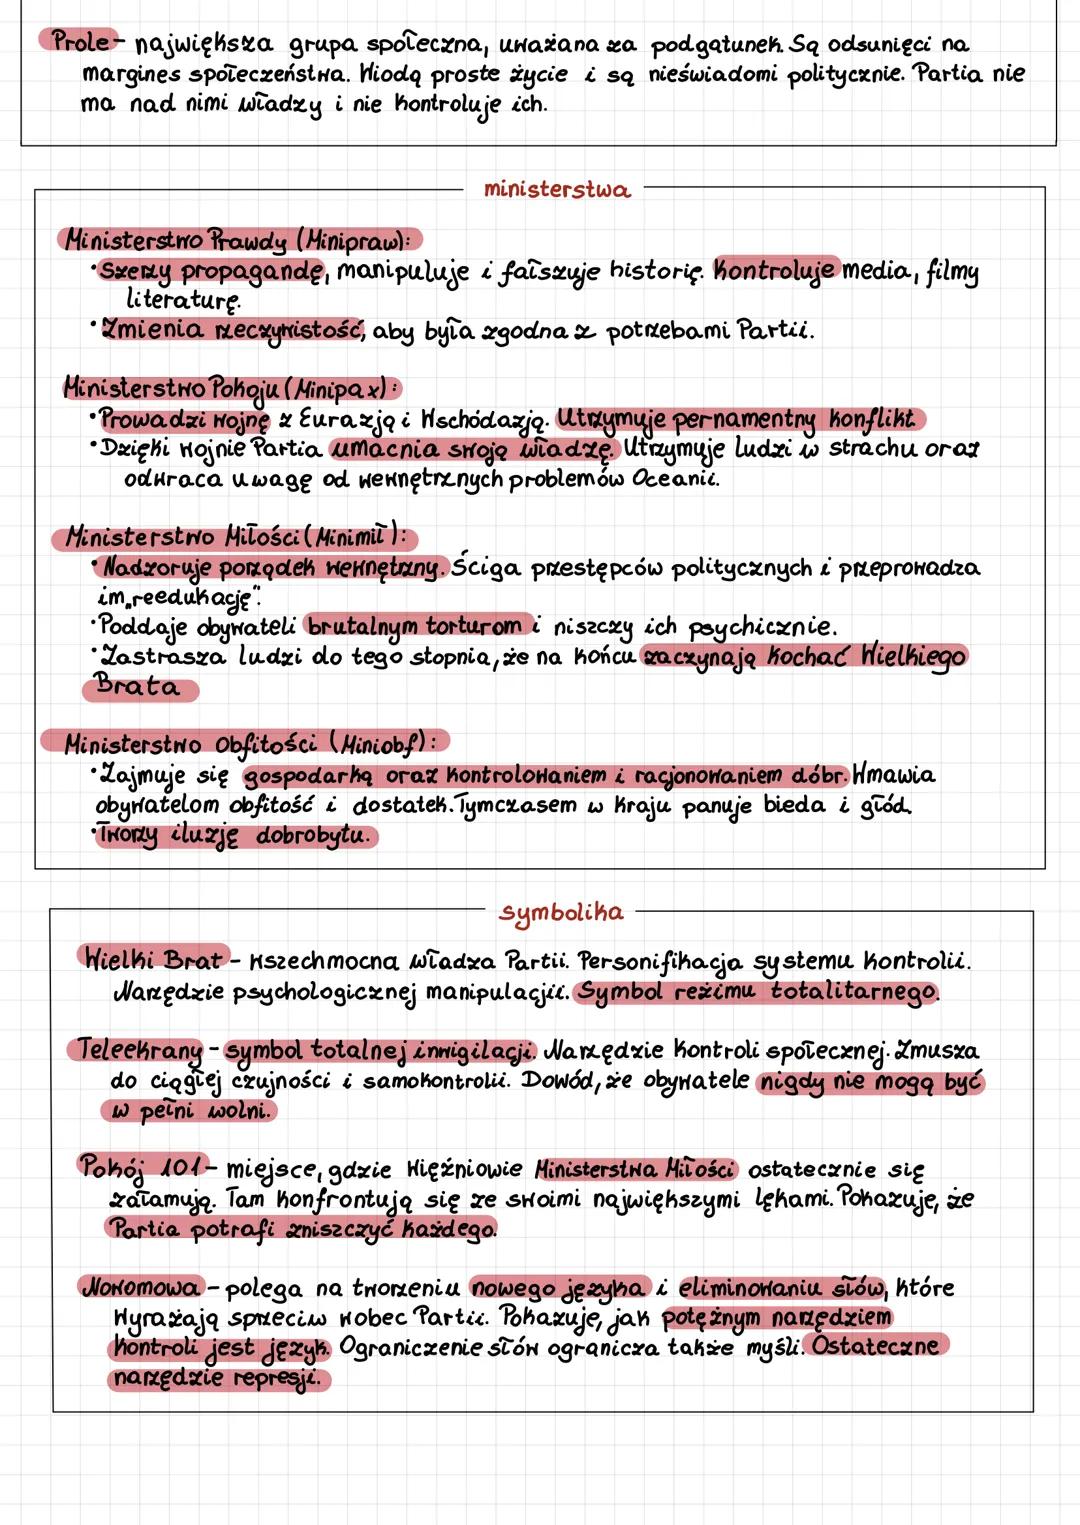 Prole - największa grupa społeczna, uważana za podgatunek. Są odsunięci na
margines społeczeństwa. Wiodą proste życie i są nieświadomi politycznie. Partia nie
ma nad nimi władzy i nie kontroluje ich.
ministerstwa
Ministerstwo Prawdy (Minipraw):
•Szerzy propagandę, manipuluje i fałszuje historię. Kontroluje media, filmy
literaturę.
•Zmienia rzeczywistość, aby była zgodna z potrzebami Partii.
Ministerstwo Pokoju (Minipax):
•Prowadzi wojnę z Eurazją i Wschódazją. Utrzymuje pernamentny konflikt
•Dzięki wojnie Partia umacnia swoją władzę. Utrzymuje ludzi w strachu oraz
odwraca uwagę od wewnętrznych problemów Oceanii.
Ministerstwo Miłości (Minimił):
•Nadzoruje porządek wewnętrzny. Ściga przestępców politycznych i przeprowadza
im „reedukację".
•Poddaje obywateli brutalnym torturom i niszczy ich psychicznie.
•Zastrasza ludzi do tego stopnia, że na końcu zaczynają kochać Wielkiego
Brata
Ministerstwo Obfitości (Miniobf):
•Zajmuje się gospodarką oraz kontrolowaniem i racjonowaniem dóbr. Wmawia
obywatelom obfitość i dostatek. Tymczasem w kraju panuje bieda i głód.
•Tworzy iluzję dobrobytu.
symbolika
Wielki Brat - wszechmocna władza Partii. Personifikacja systemu kontroli.
Narzędzie psychologicznej manipulacjii. Symbol reżimu totalitarnego.
Teleekrany - symbol totalnej inwigilacji. Narzędzie kontroli społecznej. Zmusza
do ciągłej czujności i samokontroli. Dowód, że obywatele nigdy nie mogą być
w pełni wolni.
Pokój 101 - miejsce, gdzie więźniowie Ministerstwa Miłości ostatecznie się
załamują. Tam konfrontują się ze swoimi największymi lękami. Pokazuje, że
Partia potrafi zniszczyć każdego.
Nowomowa - polega na tworzeniu nowego języka i eliminowaniu słów, które
wyrażają sprzeciw wobec Partii. Pokazuje, jak potężnym narzędziem
kontroli jest język. Ograniczenie słów ogranicza także myśli. Ostateczne
narzędzie represji.